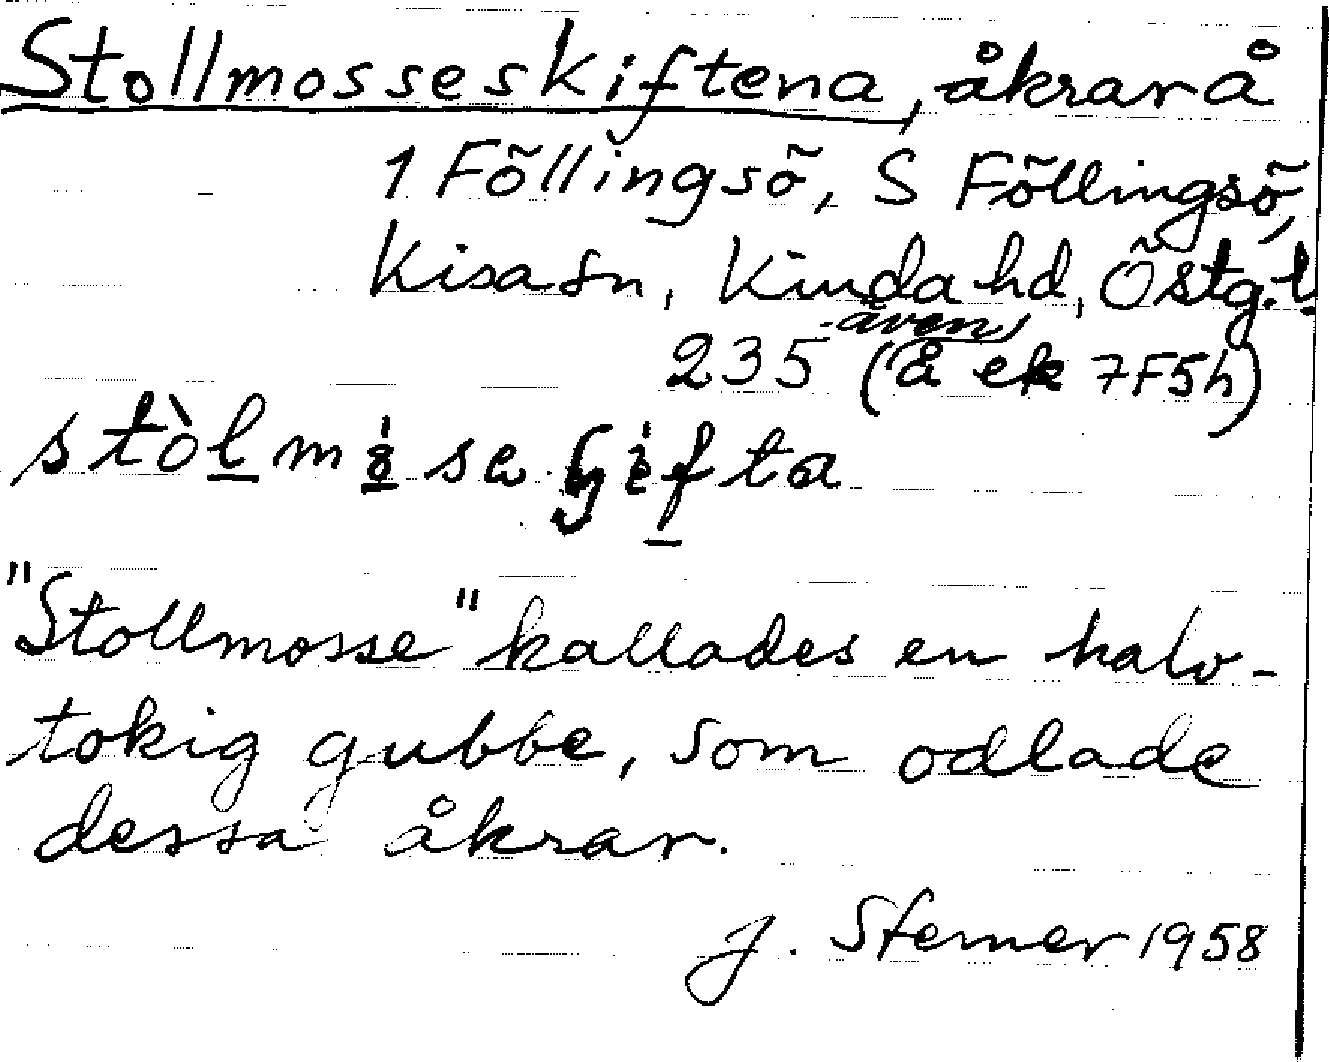 Stollmosseskiftena, åkrar å
1 Föllingsö, S Föllingsö,
Kisa sn, Kinda hd, Östg. l.
även
235 (å ek 7F5h)
"Stollmosse" kallades en halv-
tokig gubbe, som odlade
dessa åkrar.
J. Sterner 1958